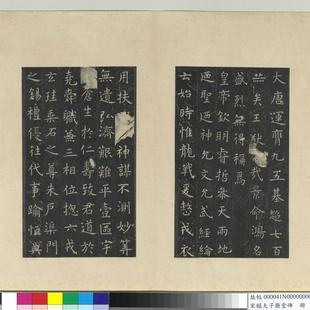 大唐運膺九五基超七百
赫矣王猷哉景命鴻名
盛烈無得稱焉
皇帝欽明睿哲參天兩地
迺聖迺神允文允武經綸
云始時惟龍戰爰整戎衣
用扶神謀不測妙算
無遺弘濟艱難平壹區宇
蒼生於仁壽致君道於
堯舜職兼三相位揔六戎
玄珪乘石之尊朱戶渠門
之錫禮優往代事踰恒典
故帖 000041N00000000
宋搨夫子廟堂碑 冊